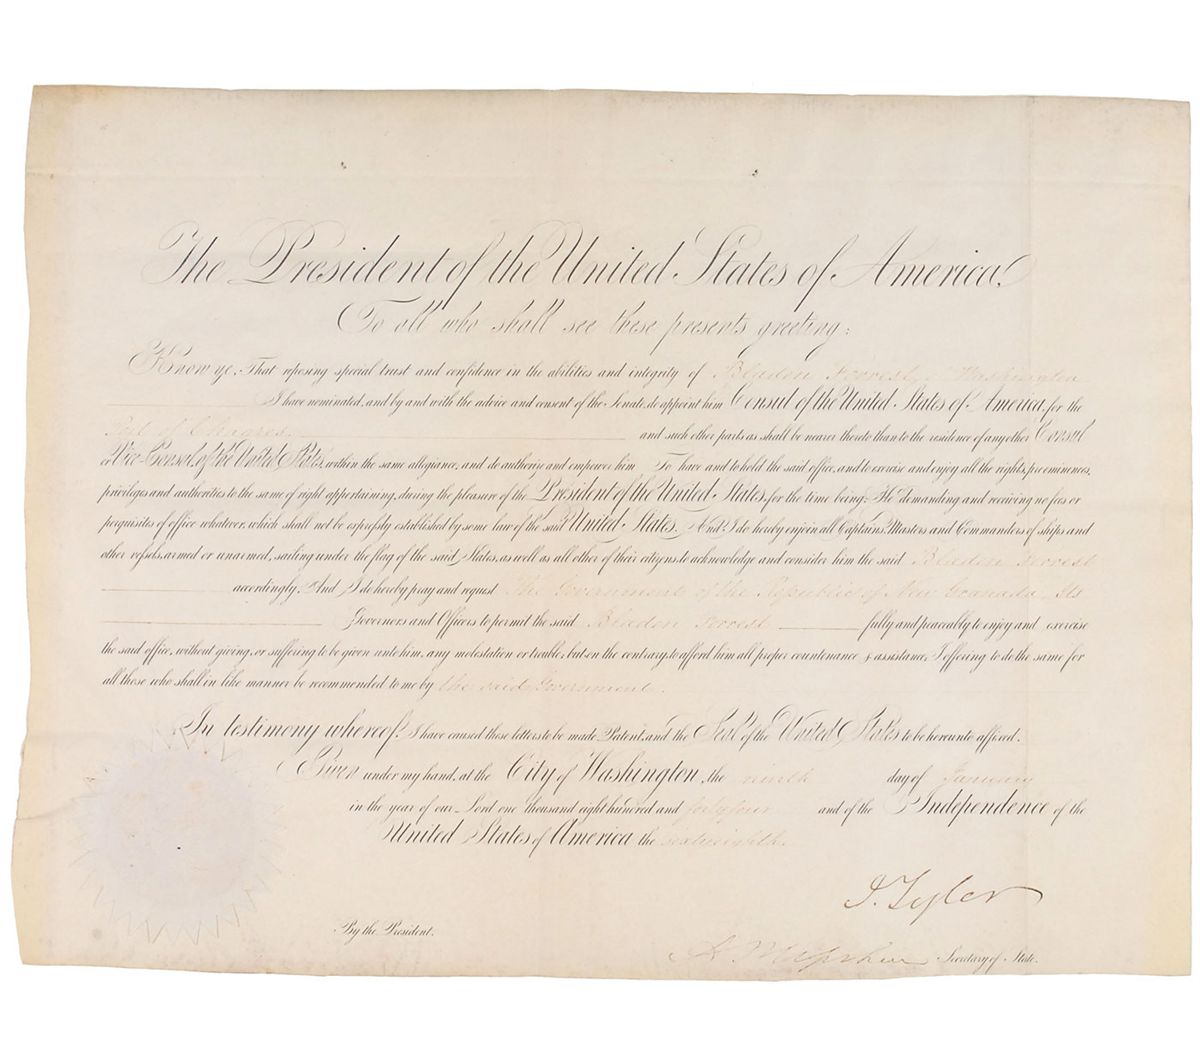 The President of the United States of America,
To all who shall see these presents greeting:
Know ye, That reposing special trust and confidence in the abilities and integrity of Bladen Forrest, Washington
I have nominated, and by and with the advice and consent of the Senate, do appoint him Consul of the United States of America, for the
Port of Chagres. and such other parts as shall be nearer thereto than to the residence of any other Consul
or Vice-Consul of the United States, within the same allegiance, and do authorise and empower him To have and to hold the said office, and to exercise and enjoy all the rights, preeminences,
privileges and authorities to the same of right appertaining, during the pleasure of the President of the United States, for the time being; He demanding and receiving no fees or
perquisites of office whatever, which shall not be expressly established by some law of the said United States. And I do hereby enjoin all Captains, Masters and Commanders of ships and
other vessels, armed or unarmed, sailing under the flag of the said States, as well as all other of their citizens, to acknowledge and consider him the said Bladen Forrest
accordingly. And I do hereby pray and request The Government of the Republic of New Granada, Its
Governors and Officers to permit the said Bladen Forrest fully and peaceably to enjoy and exercise
the said office, without giving, or suffering to be given unto him, any molestation or trouble, but on the contrary, to afford him all proper countenance & assistance; I offering to do the same for
all those who shall in like manner be recommended to me by the said Government.
In testimony whereof, I have caused these letters to be made Patent, and the Seal of the United States to be hereunto affixed.
Given under my hand, at the City of Washington, the ninth day of January
in the year of our Lord one thousand eight hundred and forty four and of the Independence of the
United States of America, the sixty eighth.
J. Tyler
By the President.
A. P. Upshur Secretary of State.